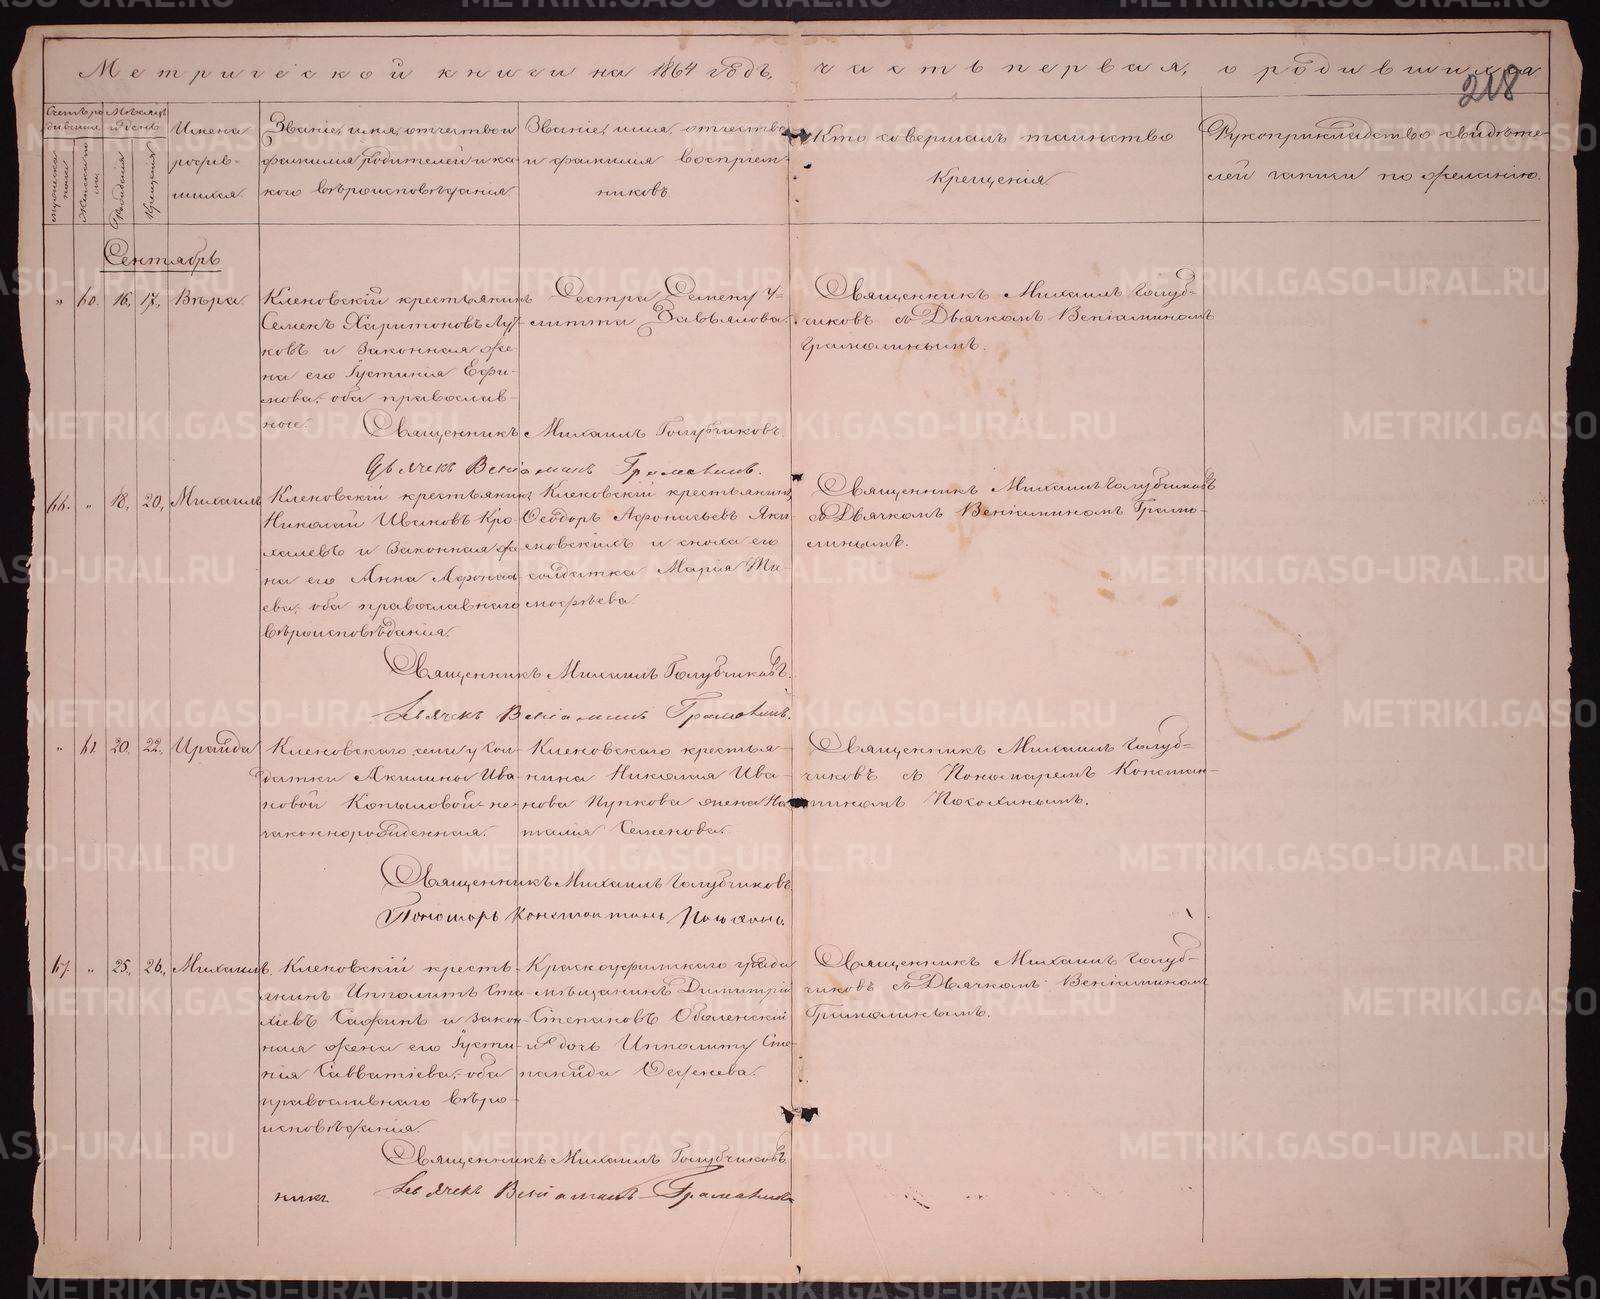 Метрической книги на 1864 годъ, часть первая, о родившихся
218
Счетъ родившихся
Мѣсяцъ и день
Имена родившихся.
мужеска пола
Женска пола
Рожденія
Крещенія
Званіе, имя, отчество и
фамилія родителей и ка-
кого вѣроисповѣданія
Званіе, имя, отчество
и фамилія воспріем-
никовъ.
Кто совершалъ таинство
Крещенія.
Рукоприкладство свидѣте-
лей записи по желанію.
Сентябрь
" 60. 16. 17. Вѣра.
Кленовскій крестьянинъ
Семенъ Харитоновъ
ковъ и законная же-
на его Іустинія Ефи-
мова, оба православ-
ные.
Сестра Семену У-
литта Завьялова.
Священникъ Михаилъ Голуб-
чиковъ съ Дьячкомъ Веніаминомъ
Грамолинымъ.
Священникъ Михаилъ Голубчиковъ.
Дьячекъ Веніаминъ Грамолинъ.
66. " 18. 20. Михаилъ
Кленовскій крестьянинъ
Николай Ивановъ Кро-
халевъ и законная же-
на его Анна Афонась-
ева, оба православнаго
вѣроисповѣданія.
Кленовскій крестьянинъ
Ѳеодоръ Афонасьевъ Яки-
мовскихъ и сноха его
солдатка Марія Ти-
мофѣева.
Священникъ Михаилъ Голубчиковъ
съ Дьячкомъ Веніаминомъ Грамо-
линымъ.
Священникъ Михаилъ Голубчиковъ.
Дьячекъ Веніаминъ Грамолинъ.
" 61. 20. 22. Ираида
Кленовскаго села у сол-
датки Акилины Ива-
новой Копыловой-не-
законнорожденная.
Кленовскаго крестья-
нина Николая Ива-
нова Пупкова жена На-
талія Семенова.
Священникъ Михаилъ Голуб-
чиковъ съ Пономаремъ Констан-
тиномъ Посохинымъ.
Священникъ Михаилъ Голубчиковъ
Пономарь Константинъ Посохинъ.
67. " 25. 26. Михаилъ.
Кленовскій кресть-
янинъ Ипполитъ Ста-
хіевъ Сафинъ и закон-
ная жена его Іусти-
нія Савватіева, оба
православнаго вѣро-
исповѣданія.
Красноуфимскаго уѣзда
мѣщанинъ Димитрій
Степановъ Оболенскій
и дочь Ипполиту Сте-
панида
Священникъ Михаилъ Голуб-
чиковъ съ Дьячкомъ Веніаминомъ
Грамолинымъ.
Священникъ Михаилъ Голубчиковъ
Дьячекъ Веніаминъ Грамолинъ
никъ
METRIKI.GASO-URAL.RU